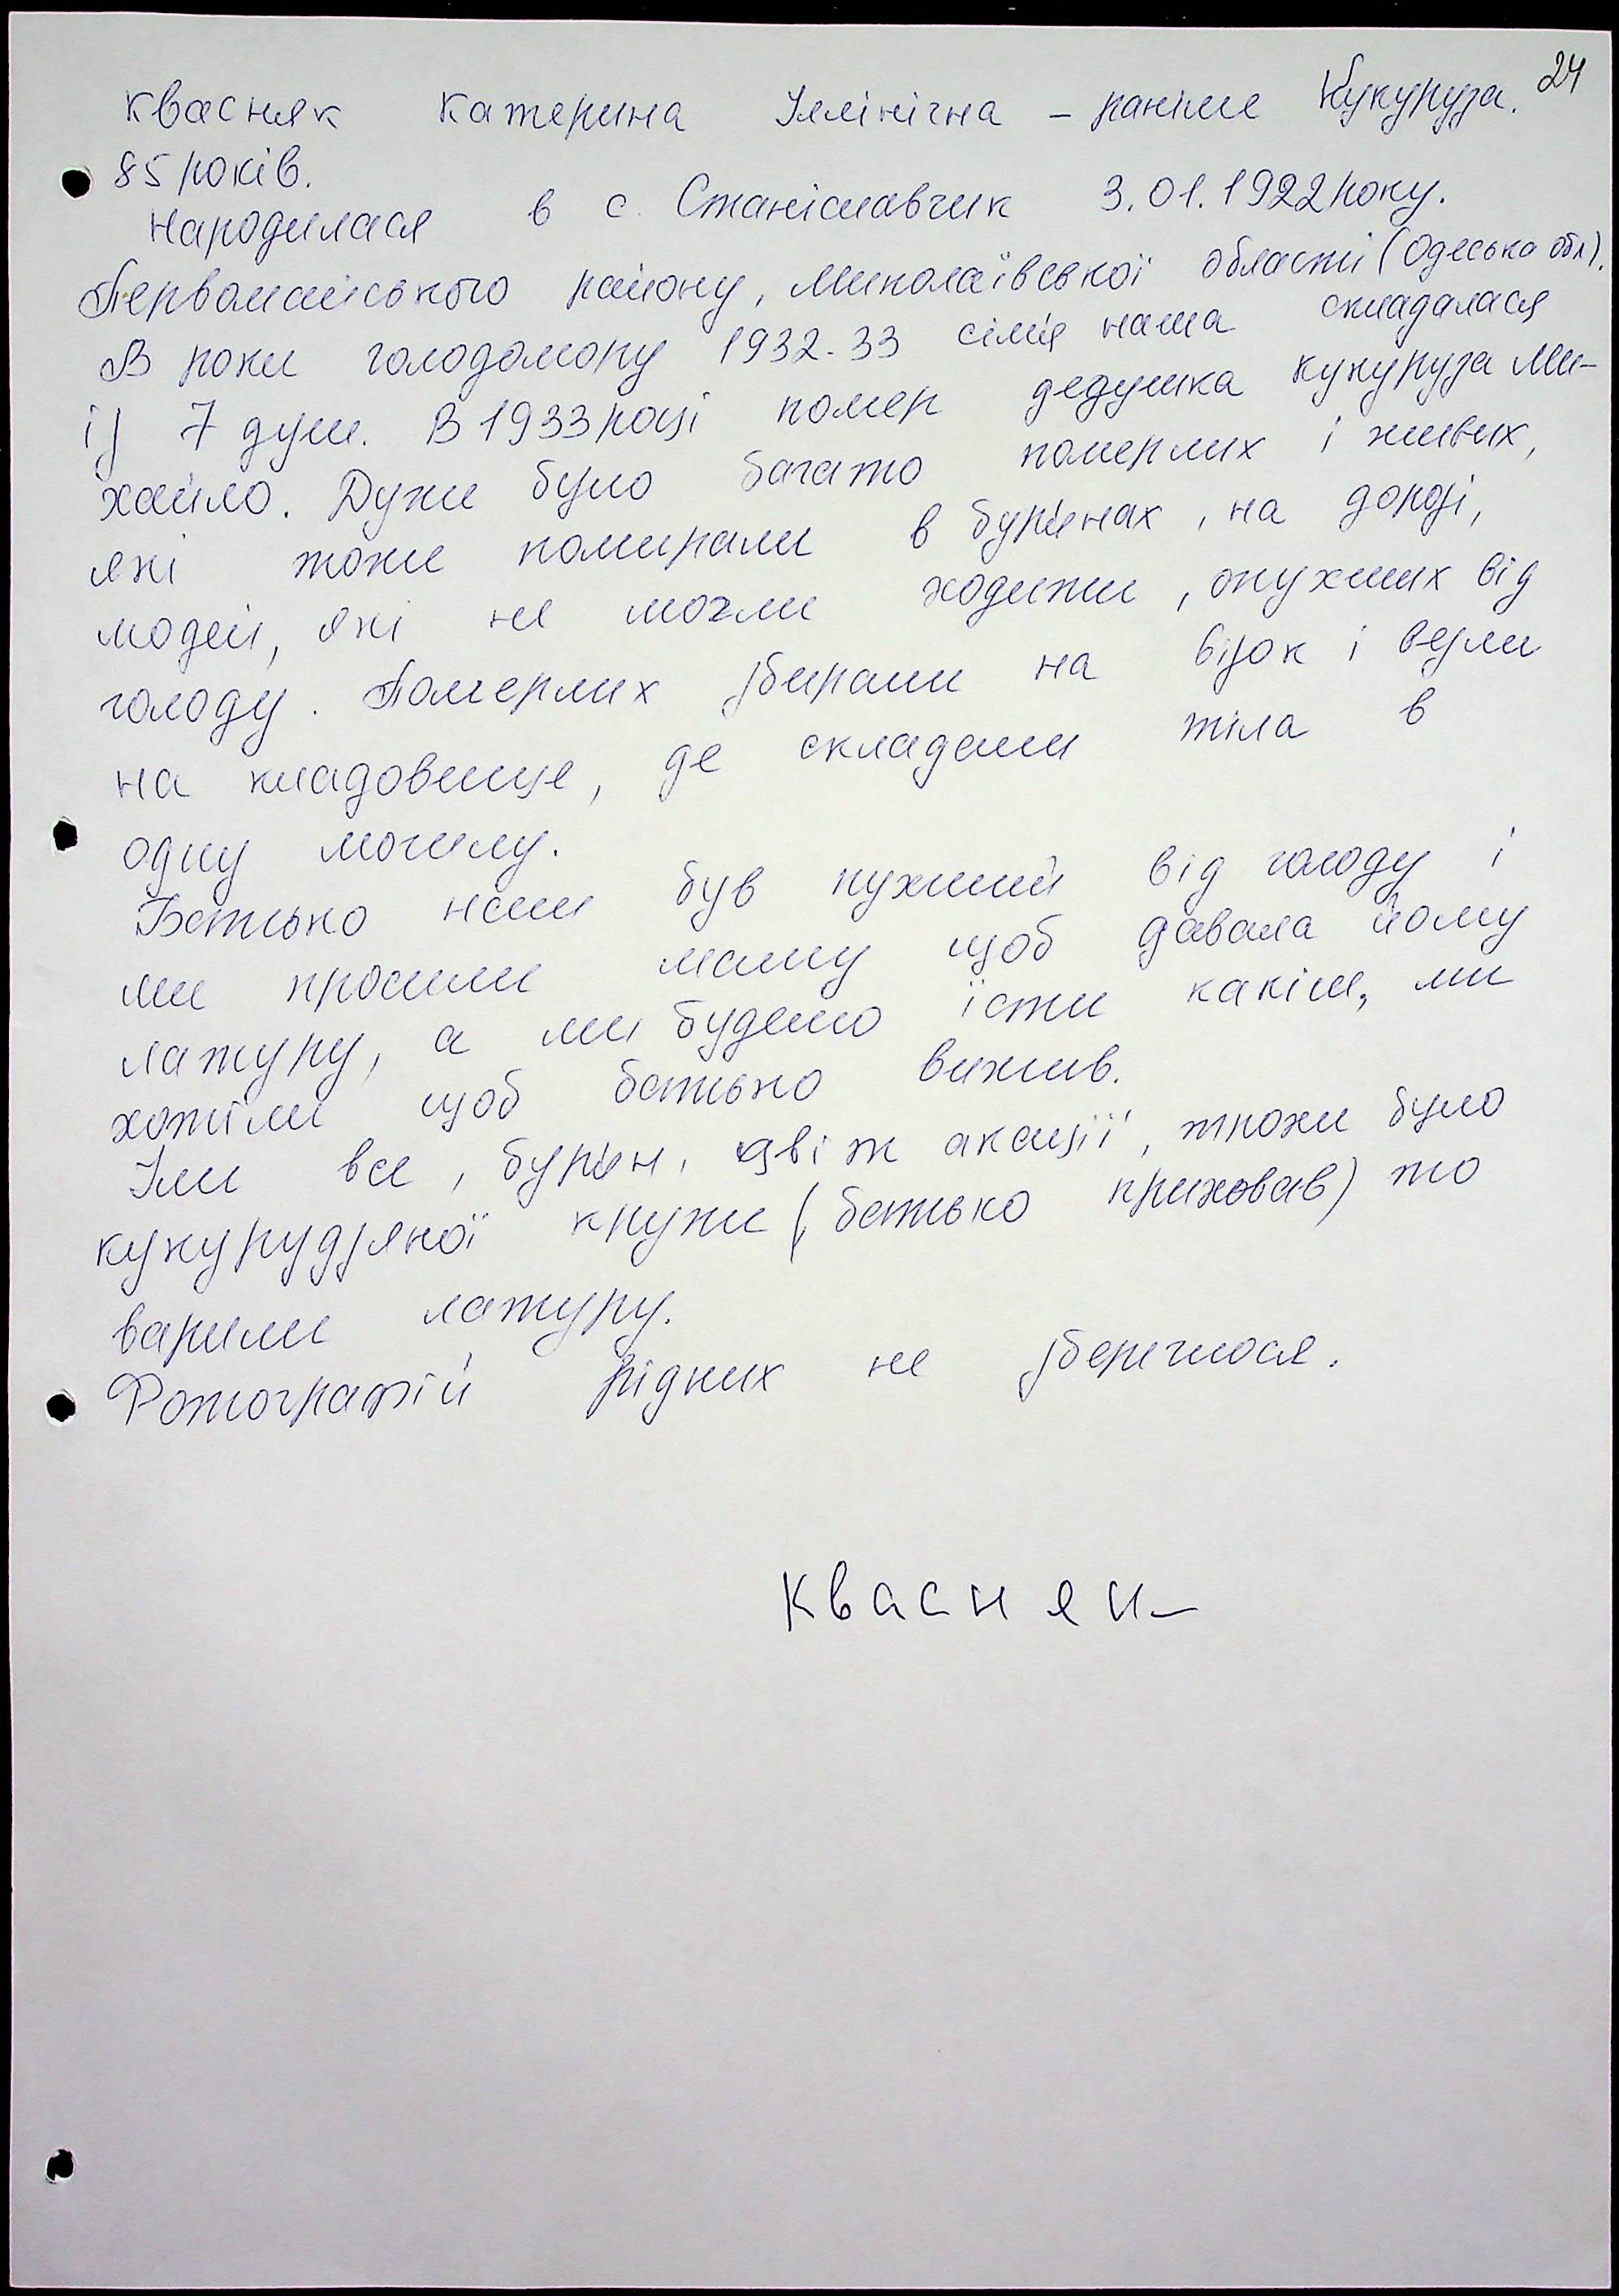 24
Квасняк Катерина Іллінічна - раніше Кукуруза.
85 років.
Народилася в с. Станіславчик 3.01.1922 року.
Первомайського району, Миколаївської області (Одеська обл).
В роки голодомору 1932-33 сімія наша складалася
із 7 душ. В 1933 році помер дедушка Кукуруза Ми-
хайло. Дуже було багато померлих і живих,
які тоже помирали в бур'янах, на дорозі,
людей, які не могли ходити, опухших від
голоду. Померлих збирали на візок і везли
на кладовище, де складали тіла в
одну могилу.
Батько наш був пухший від голоду і
ми просили маму щоб давала йому
латуру, а ми будемо їсти какіш, ми
хотіли щоб батько вижив.
Їли все, бур'ян, цвіт акації, трохи було
кукурудзяної крупи (батько приховав) то
варили латуру.
Фотографій рідних не збереглося.
Квасняк